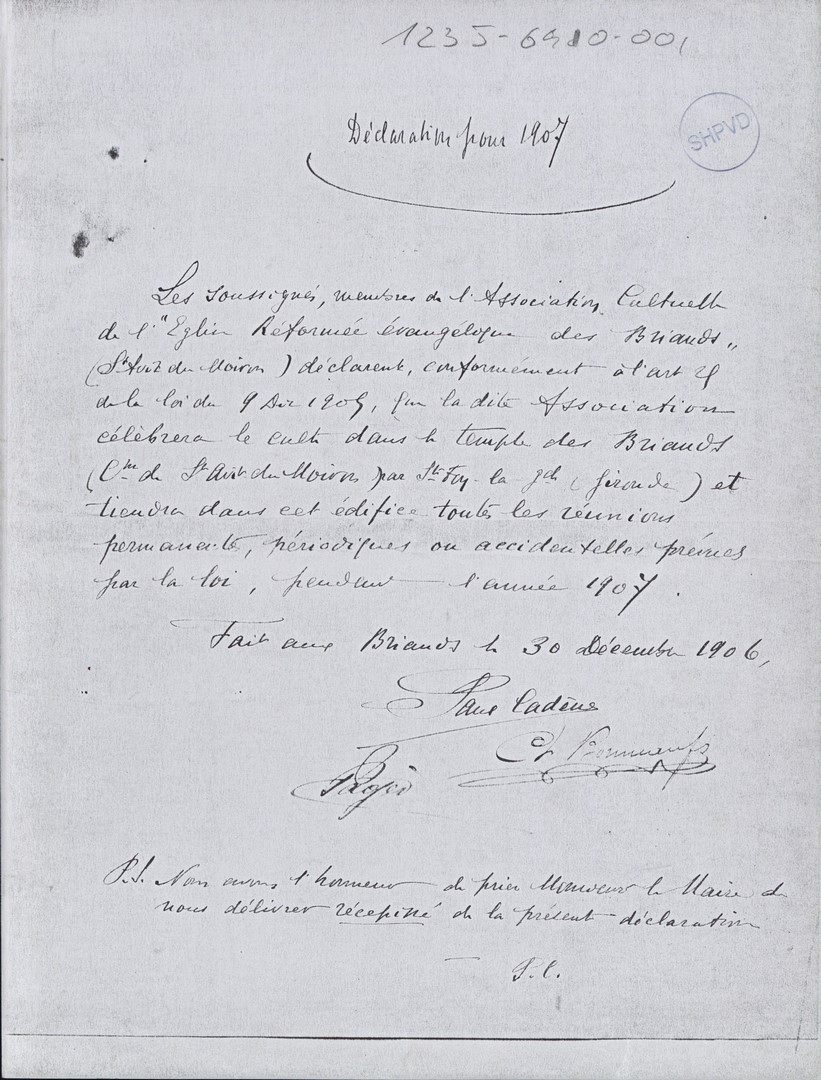 1235-6910-001
SHPVD
Déclaration pour 1907
Les soussignés, membres de l'Association Cultuelle
de l'"Eglise Réformée évangélique des Briands"
(St Avit du Moiron) déclarent, conformément à l'art 25
de la loi du 9 Déc 1905, que la dite Association
célèbrera le culte dans le temple des Briands
(Cne de St Avit du Moiron par Ste Foy la gde (Gironde) et
tiendra dans cet édifice toutes les réunions
permanentes, périodiques ou accidentelles prévues
par la loi, pendant l'année 1907.
Fait aux Briands le 30 Décembre 1906,
Paul Cadène
Ch
P.S. Nous avons l'honneur de prier Monsieur le Maire de
nous délivrer récépissé de la présente déclaration
P.C.